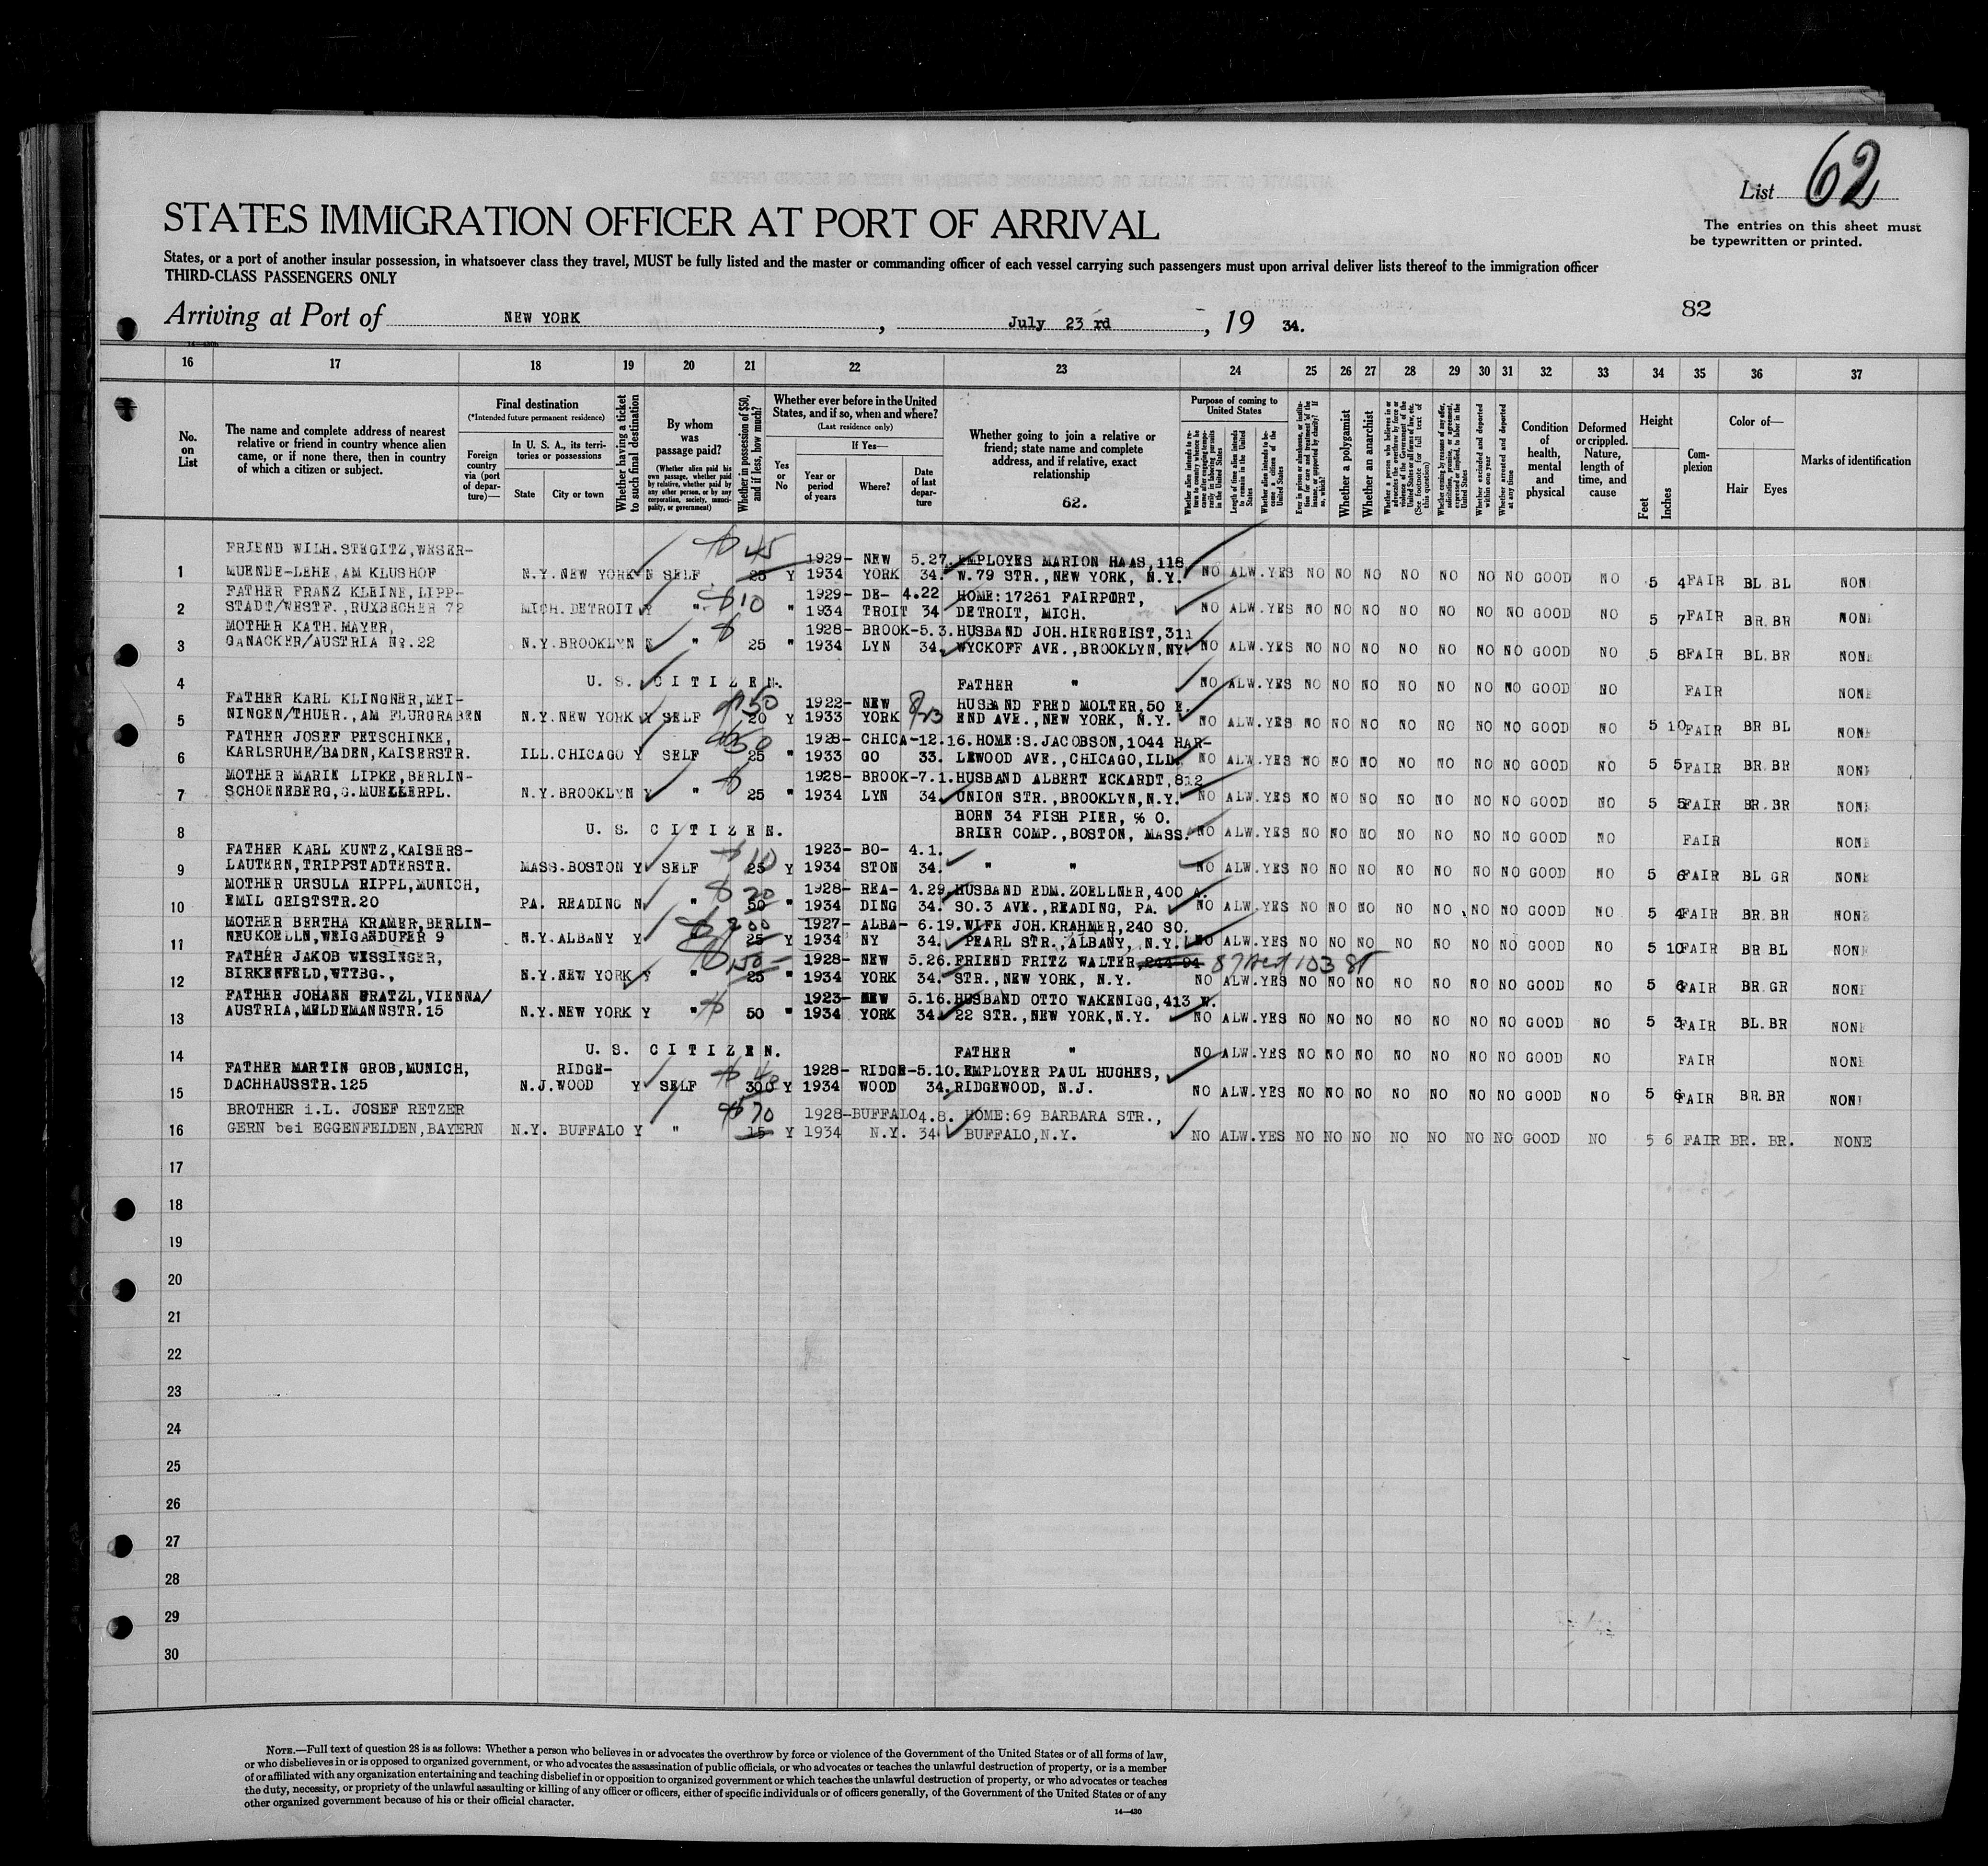 List 62
The entries on this sheet must
be typewritten or printed.
STATES IMMIGRATION OFFICER AT PORT OF ARRIVAL
States, or a port of another insular possession, in whatsoever class they travel, MUST be fully listed and the master or commanding officer of each vessel carrying such passengers must upon arrival deliver lists thereof to the immigration officer
THIRD-CLASS PASSENGERS ONLY
82
Arriving at Port of NEW YORK, July 23 rd, 19 34.
16 17 18 19 20 21 22 23 24 25 26 27 28 29 30 31 32 33 34 35 36 37
No. on List
The name and complete address of nearest relative or friend in country whence alien came, or if none there, then in country of which a citizen or subject.
Final destination
(*Intended future permanent residence)
Foreign country via (port of departure)—
In U. S. A., its territories or possessions
State City or town
Whether having a ticket to such final destination
By whom was passage paid?
(Whether alien paid his own passage, whether paid by relative, whether paid by any other person, or by any corporation, society, municipality, or government)
Whether in possession of $50, and if less, how much?
Whether ever before in the United States, and if so, when and where?
(Last residence only)
Yes or No
If Yes—
Year or period of years
Where?
Date of last departure
Whether going to join a relative or friend; state name and complete address, and if relative, exact relationship
62.
Purpose of coming to United States
Length of time alien intends to remain in the United States
Whether alien intends to become a citizen of the United States
Whether a polygamist
Whether an anarchist
(See footnote for full text of this question)
Whether excluded and deported within one year
Whether arrested and deported at any time
Condition of health, mental and physical
Deformed or crippled. Nature, length of time, and cause
Height
Feet Inches
Complexion
Color of—
Hair Eyes
Marks of identification
FRIEND WILH.STEGITZ,WESER- $ 45 1929- NEW 5.27. EMPLOYES MARION HAAS,118
1 MUENDE-LEHE,AM KLUSHOF N.Y.NEW YORK N SELF 25 Y 1934 YORK 34. W.79 STR.,NEW YORK, N.Y. NO ALW.YES NO NO NO NO NO NO NO GOOD NO 5 4 FAIR BL BL NONE
FATHER FRANZ KLEINE,LIPP- $ 10 1929- DE- 4.22 HOME:17261 FAIRPORT,
2 STADT/WESTF.,RUXBECHER 72 MICH.DETROIT Y " " 1934 TROIT 34 DETROIT, MICH. NO ALW.YES NO NO NO NO NO NO NO GOOD NO 5 7 FAIR BR.BR NONE
MOTHER KATH.MAYER, $ 1928- BROOK-5.3. HUSBAND JOH.HIERGEIST,311
3 GANACKER/AUSTRIA Nr.22 N.Y.BROOKLYN N " 25 " 1934 LYN 34. WYCKOFF AVE.,BROOKLYN,NY NO ALW.YES NO NO NO NO NO NO NO GOOD NO 5 8 FAIR BL.BR NONE
4 U. S. CITIZEN. FATHER " NO ALW.YES NO NO NO NO NO NO NO GOOD NO FAIR NONE
FATHER KARL KLINGNER,MEI- $ 50 1922- NEW HUSBAND FRED MOLTER,50 E.
5 NINGEN/THUER.,AM FLURGRABEN N.Y.NEW YORK Y SELF 20 Y 1933 YORK END AVE.,NEW YORK, N.Y. NO ALW.YES NO NO NO NO NO NO NO GOOD NO 5 10 FAIR BR BL NONE
FATHER JOSEF PETSCHINKE, $ 50 1928- CHICA-12.16. HOME:S.JACOBSON,1044 HAR-
6 KARLSRUHE/BADEN,KAISERSTR. ILL.CHICAGO Y SELF 25 " 1933 GO 33. LEWOOD AVE.,CHICAGO,ILL. NO ALW.YES NO NO NO NO NO NO NO GOOD NO 5 5 FAIR BR.BR NONE
MOTHER MARIE LIPKE,BERLIN- $ 1928- BROOK-7.1. HUSBAND ALBERT ECKARDT,812
7 SCHOENEBERG,G.MUELLERPL. N.Y.BROOKLYN Y " 25 " 1934 LYN 34. UNION STR.,BROOKLYN,N.Y. NO ALW.YES NO NO NO NO NO NO NO GOOD NO 5 5 FAIR BR.BR NONE
BORN 34 FISH PIER, % O.
8 U. S. CITIZEN. BRIER COMP.,BOSTON, MASS. NO ALW.YES NO NO NO NO NO NO NO GOOD NO FAIR NONE
FATHER KARL KUNTZ,KAISERS- $ 10 1923- BO- 4.1.
9 LAUTERN,TRIPPSTADTERSTR. MASS.BOSTON Y SELF 25 Y 1934 STON 34. " " NO ALW.YES NO NO NO NO NO NO NO GOOD NO 5 6 FAIR BL GR NONE
MOTHER URSULA RIPPL,MUNICH, $ 20 1928- REA- 4.29. HUSBAND EDM.ZOELLNER,400 A.
10 EMIL GEISTSTR.20 PA. READING N " 50 " 1934 DING 34. SO.3 AVE.,READING, PA. NO ALW.YES NO NO NO NO NO NO NO GOOD NO 5 4 FAIR BR.BR NONE
MOTHER BERTHA KRAMER,BERLIN- $ 200 1927- ALBA- 6.19. WIFE JOH.KRAHMER,240 SO.
11 NEUKOELLN,WEIGANDUFER 9 N.Y.ALBANY Y " 25 Y 1934 NY 34. PEARL STR.,ALBANY, N.Y. NO ALW.YES NO NO NO NO NO NO NO GOOD NO 5 10 FAIR BR BL NONE
FATHER JAKOB WESSINGER, $ 150 1928- NEW 5.26. FRIEND FRITZ WALTER,244 94 87 West 103 St
12 BIRKENFELD,WTTBG., N.Y.NEW YORK Y 25 " 1934 YORK 34. STR.,NEW YORK, N.Y. NO ALW.YES NO NO NO NO NO NO NO GOOD NO 5 6 FAIR BR.GR NONE
FATHER JOHANN BRATZL,VIENNA/ $ 1923- NEW 5.16. HUSBAND OTTO WAKENIGG,413 W.
13 AUSTRIA,MELDEMANNSTR.15 N.Y.NEW YORK Y " 50 " 1934 YORK 34. 22 STR.,NEW YORK,N.Y. NO ALW.YES NO NO NO NO NO NO NO GOOD NO 5 3 FAIR BL.BR NONE
14 U. S. CITIZEN. FATHER " NO ALW.YES NO NO NO NO NO NO NO GOOD NO FAIR NONE
FATHER MARTIN GROB,MUNICH, RIDGE- $ 1928- RIDGE-5.10. EMPLOYER PAUL HUGHES,
15 DACHHAUSSTR.125 N.J.WOOD Y SELF 300 Y 1934 WOOD 34. RIDGEWOOD, N.J. NO ALW.YES NO NO NO NO NO NO NO GOOD NO 5 6 FAIR BR.BR NONE
BROTHER i.L. JOSEF RETZER $ 70 1928-BUFFALO 4.8. HOME:69 BARBARA STR.,
16 GERN bei EGGENFELDEN,BAYERN N.Y. BUFFALO Y " 15 Y 1934 N.Y. 34 BUFFALO,N.Y. NO ALW.YES NO NO NO NO NO NO NO GOOD NO 5 6 FAIR BR. BR. NONE
17
18
19
20
21
22
23
24
25
26
27
28
29
30
NOTE.—Full text of question 28 is as follows: Whether a person who believes in or advocates the overthrow by force or violence of the Government of the United States or of all forms of law,
or who disbelieves in or is opposed to organized government, or who advocates the assassination of public officials, or who advocates or teaches the unlawful destruction of property, or is a member
of or affiliated with any organization entertaining and teaching disbelief in or opposition to organized government or which teaches the unlawful destruction of property, or who advocates or teaches
the duty, necessity, or propriety of the unlawful assaulting or killing of any officer or officers, either of specific individuals or of officers generally, of the Government of the United States or of any
other organized government because of his or their official character.
14—430